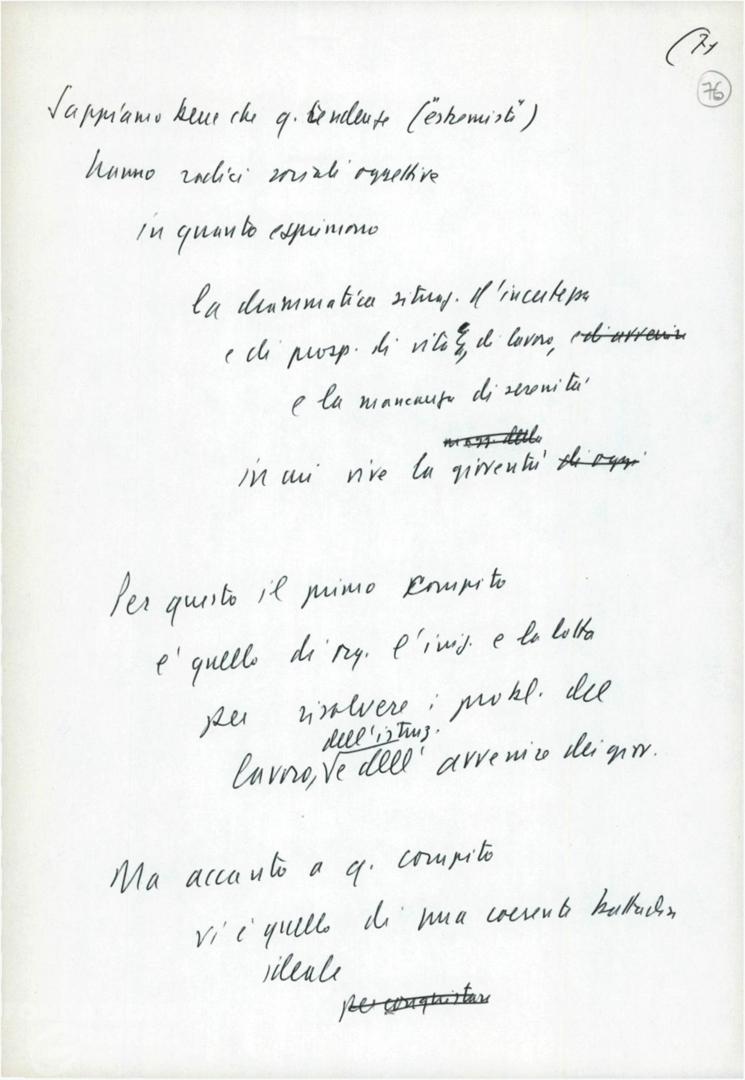 (71
76
Sappiamo bene che q. tendenze ("estremiste")
hanno radici sociali oggettive
in quanto esprimono
la drammatica situaz. d'incertezza
e di prosp. di vita e di lavoro, e di avvenire
e la mancanza di serenità
mass. della
in cui vive la gioventù di oggi
Per questo il primo compito
e' quello di org. l'iniz. e la lotta
per risolvere i probl. del
dell'istruz.
lavoro, e dell' avvenire dei giov.
Ma accanto a q. compito
vi è quello di una coerente battaglia
ideale
per conquistare